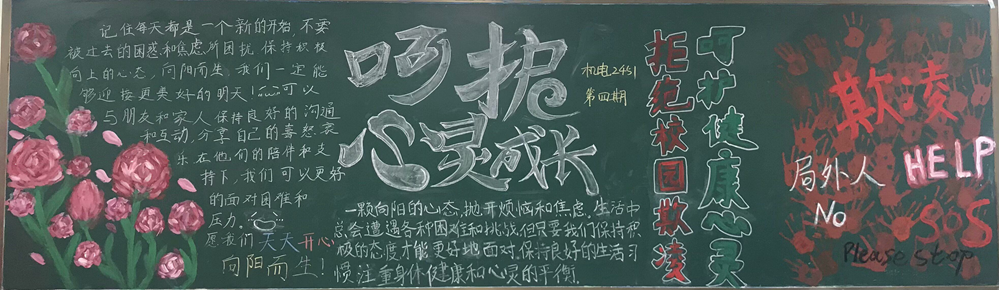 记住每天都是一个新的开始,不要
被过去的困惑和焦虑所困扰.保持积极
向上的心态,向阳而生.我们一定能
够迎接更美好的明天!可以
与朋友和家人保持良好的沟通
和互动,分享自己的喜怒哀
乐在他们的陪伴和支
持下,我们可以更好
的面对困难和
压力.
愿我们天天开心
向阳而生!
呵护
心灵成长
机电2451
第四期
一颗向阳的心态,抛开烦恼和焦虑.生活中
总会遭遇各种困难和挑战,但只要我们保持积
极的态度才能更好地面对.保持良好的生活习
惯,注重身体健康和心灵的平衡.
拒绝校园欺凌
呵护健康心灵
欺凌
局外人
No
HELP
SOS
Please stop